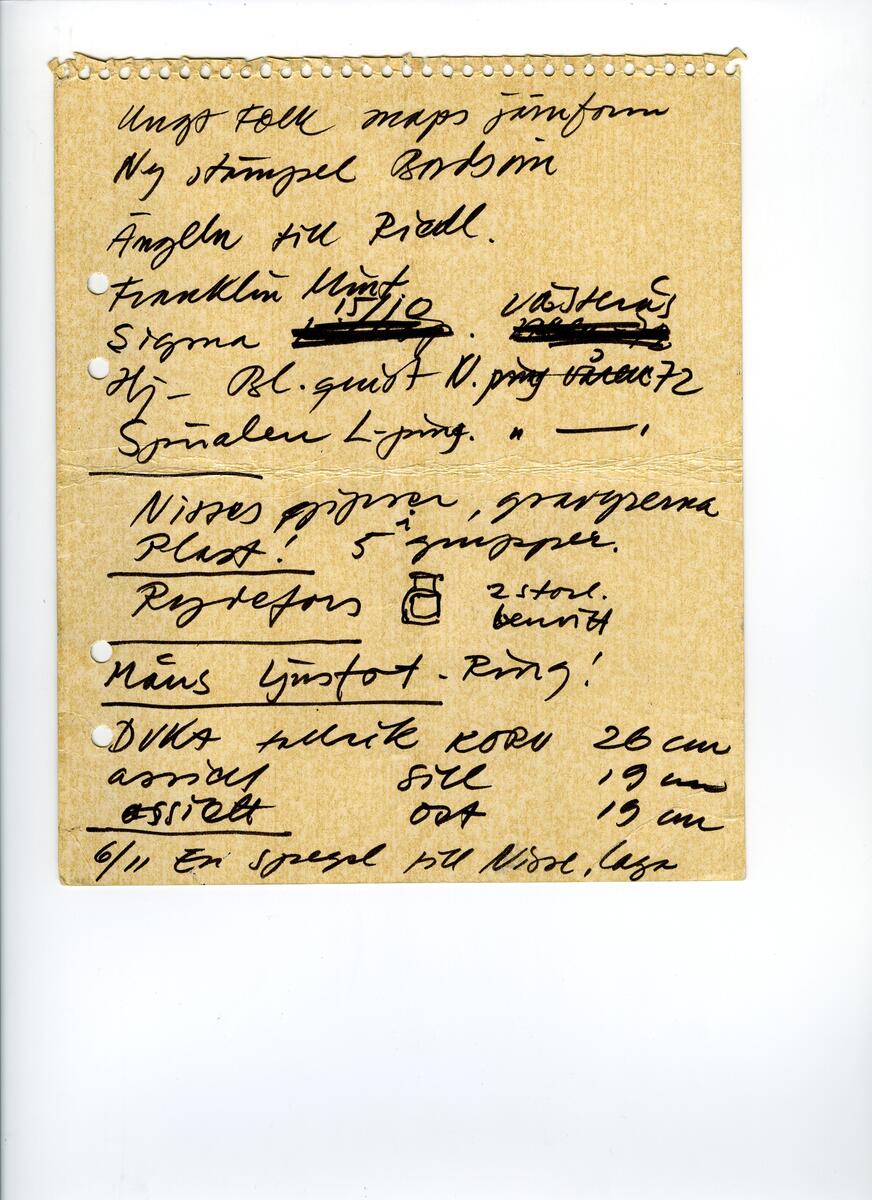 Ungt Folk maps järnform
Ny stämpel Bordsvin
Ängeln till Riedl.
Franklin Mint
Sigma 15/10. Västerås
Hj- Bl.quist N.ping våren 72
Spiralen L-ping. " — "
Nisses gipser, gravyrerna
Plast! 5 i grupper.
Rydefors 2 storl.
benvitt
Måns Ljustot - Ring!
DUKA tallrik KORV 26 cm
assiett sill 19 cm
assiett ost 19 cm
6/11 En spegel till Nisse, laga